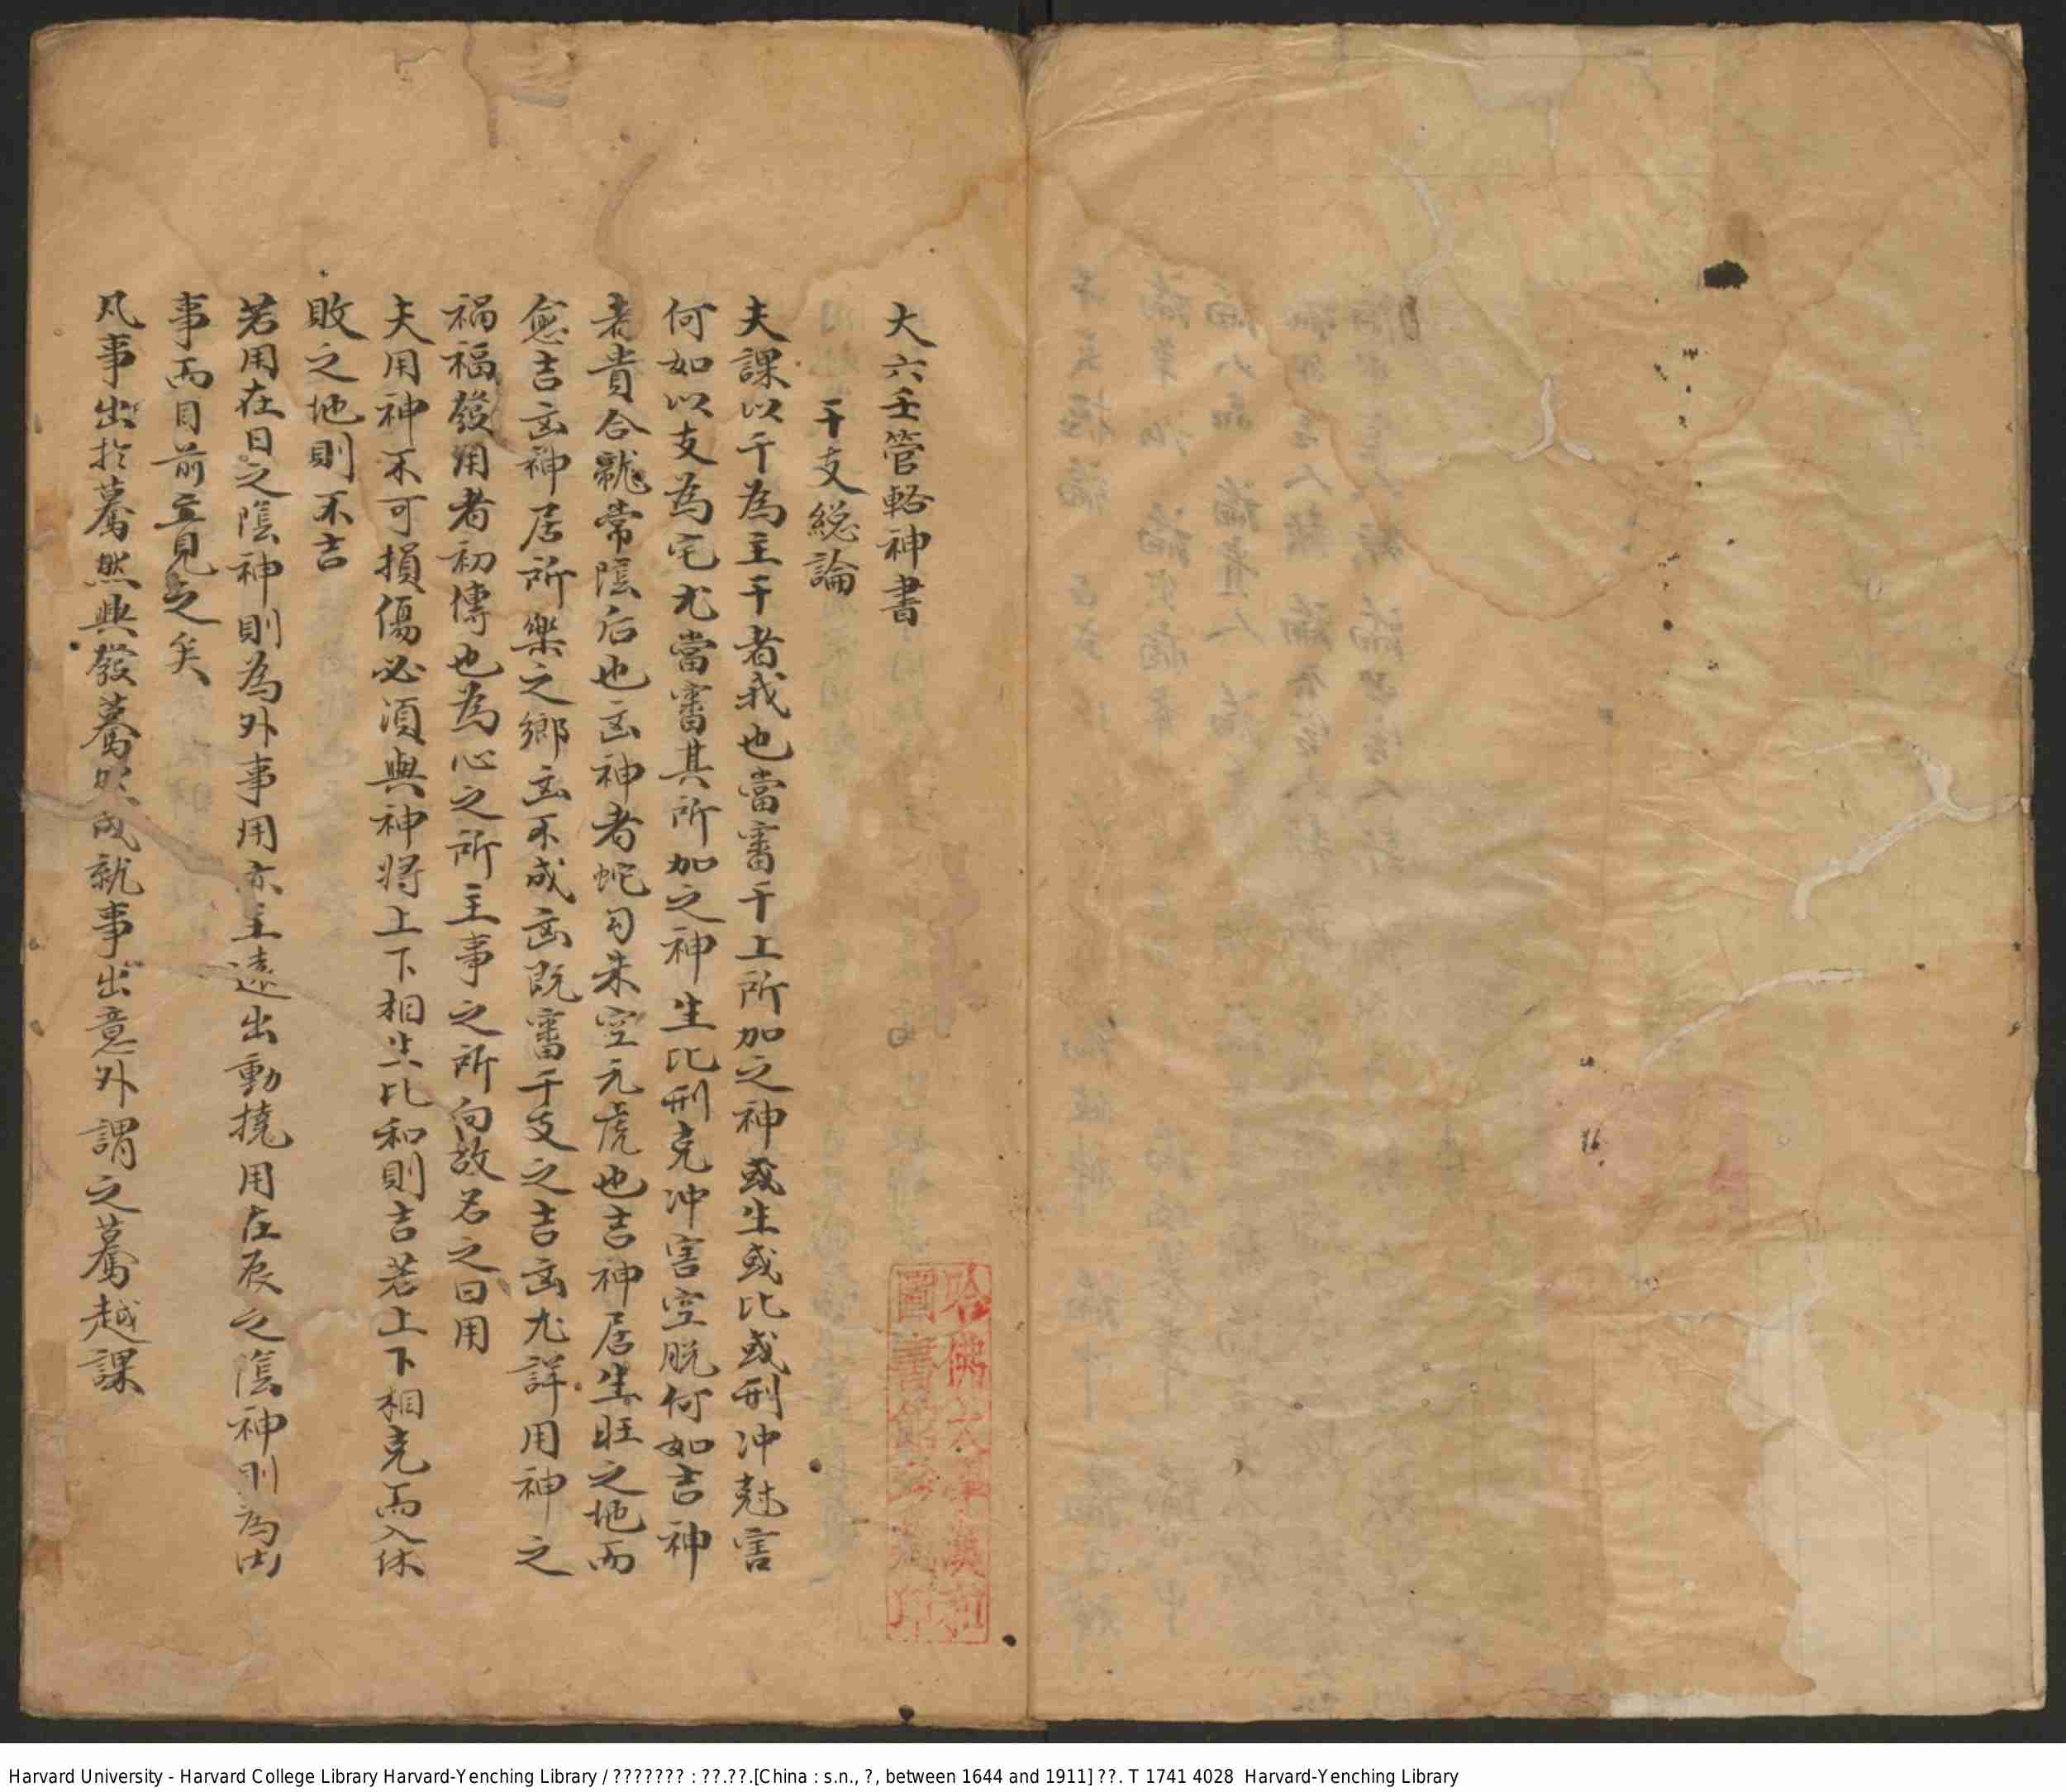 大六壬管輅神書
干支総論
夫課以干為主干者我也當審干上所加之神或生或比或刑冲尅害
何如以支為宅尤當審其所加之神生比刑克冲害空脱何如吉神
者貴合龍常陰后也凶神者蛇勾朱空元虎也吉神居生旺之地而
愈吉凶神居所樂之鄉主不成凶既審干支之吉凶尤詳用神之
禍福發用者初傳也為心之所主事之所向故名之曰用
夫用神不可損傷必須與神將上下相生比和則吉若上下相克而入休
敗之地則不吉
若用在日之陰神則為外事用亦主遠出動撓用在辰之陰神則為内
事而目前立見之矣
凡事出於驀然興發驀然成就事出意外謂之驀越課
哈佛大學漢和
圖書館珍藏印
Harvard University - Harvard College Library Harvard-Yenching Library / ??????? : ??.??.[China : s.n., ?, between 1644 and 1911] ??. T 1741 4028 Harvard-Yenching Library